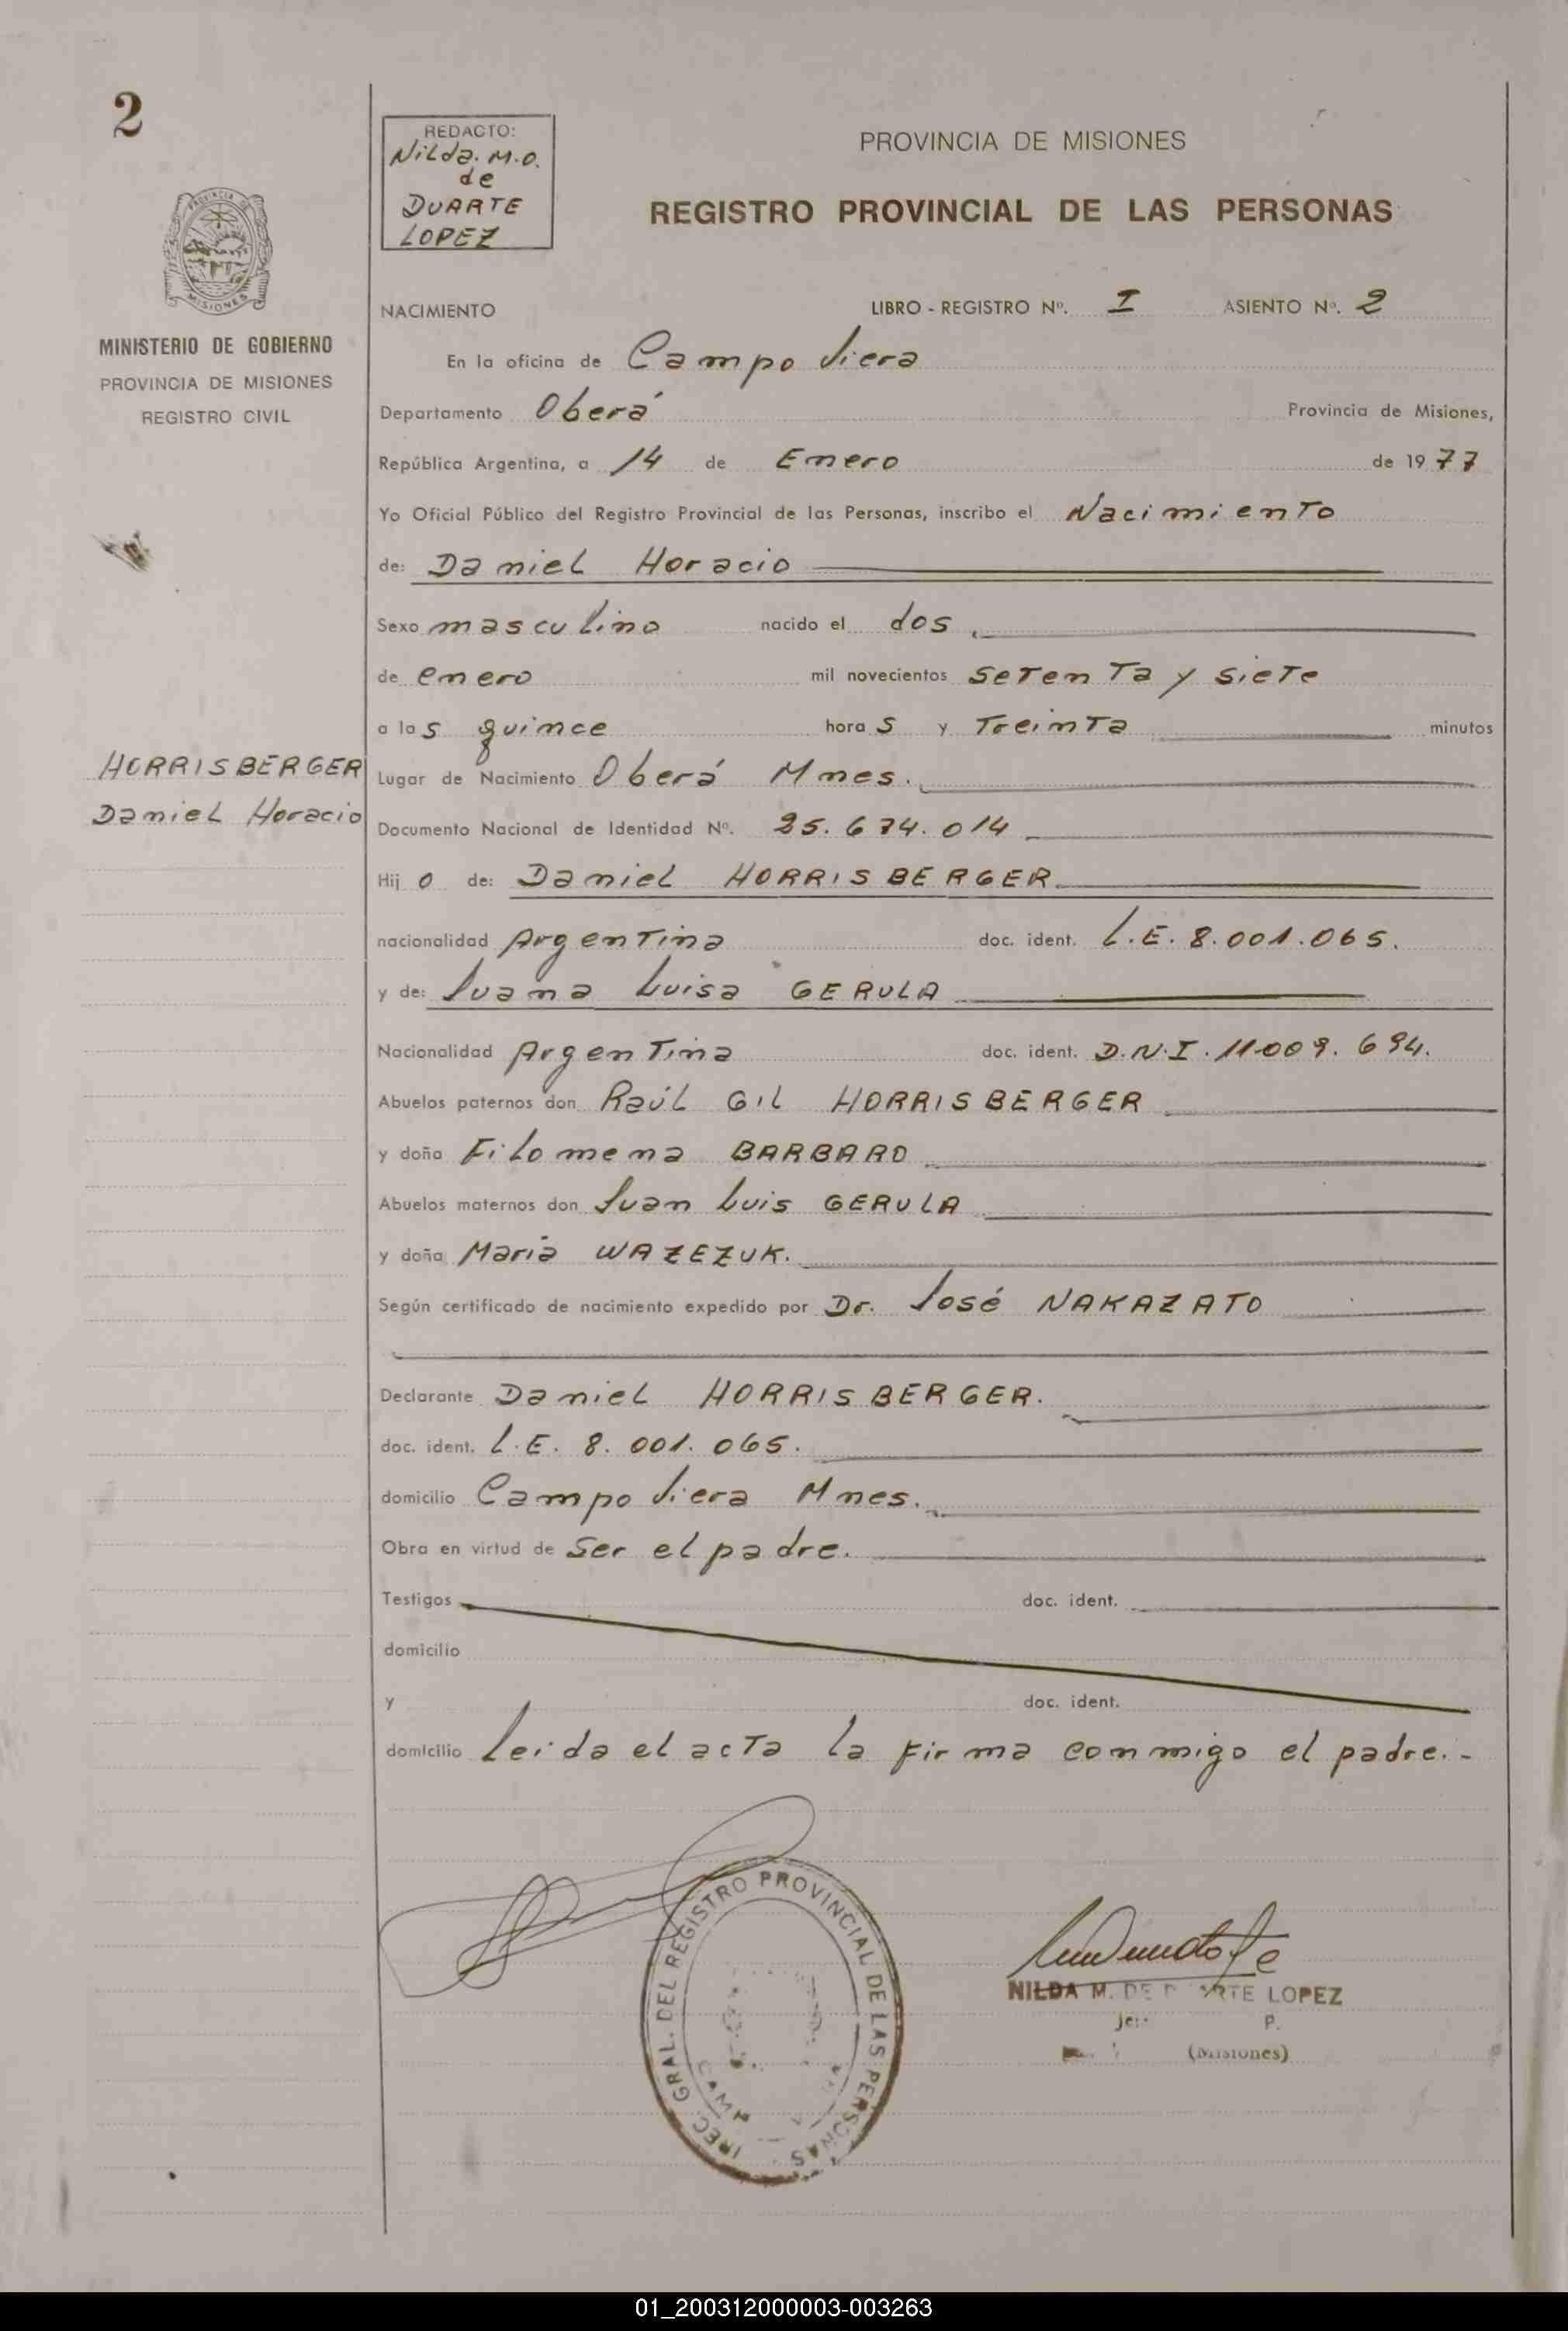 2
REDACTO:
Nilda. M.O.
de
DUARTE
LOPEZ
PROVINCIA DE MISIONES
REGISTRO PROVINCIAL DE LAS PERSONAS
MISIONES
MINISTERIO DE GOBIERNO
PROVINCIA DE MISIONES
REGISTRO CIVIL
NACIMIENTO LIBRO - REGISTRO Nº. I ASIENTO Nº. 2
En la oficina de Campo Viera
Departamento Oberá Provincia de Misiones,
República Argentina, a 14 de Enero de 1977
Yo Oficial Público del Registro Provincial de las Personas, inscribo el Nacimiento
de: Daniel Horacio
Sexo masculino nacido el dos
de enero mil novecientos setenta y siete
a las quince horas y Treinta minutos
HORRISBERGER
Daniel Horacio
Lugar de Nacimiento Oberá Mnes.
Documento Nacional de Identidad Nº. 25.674.014
Hijo de: Daniel HORRISBERGER
nacionalidad Argentina doc. ident. L.E. 8.001.065.
y de: Juana Luisa GERULA
Nacionalidad Argentina doc. ident. D.N.I. 11.009.694.
Abuelos paternos don Raúl Gil HORRISBERGER
y doña Filomena BARBARO
Abuelos maternos don Juan Luis GERULA
y doña Maria WAZEZUK.
Según certificado de nacimiento expedido por Dr. José NAKAZATO
Declarante Daniel HORRISBERGER.
doc. ident. L.E. 8.001.065.
domicilio Campo Viera Mnes.
Obra en virtud de ser el padre.
Testigos doc. ident.
domicilio
y doc. ident.
domicilio Leida el acta la firma conmigo el padre.-
GRAL. DEL REGISTRO PROVINCIAL DE LAS PERSONAS
NILDA M. DE LOPEZ
(Misiones)
01_200312000003-003263